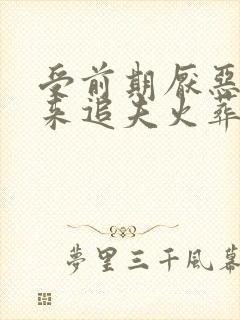 受前期厌恶
来追夫火葬
夢里三千風幕